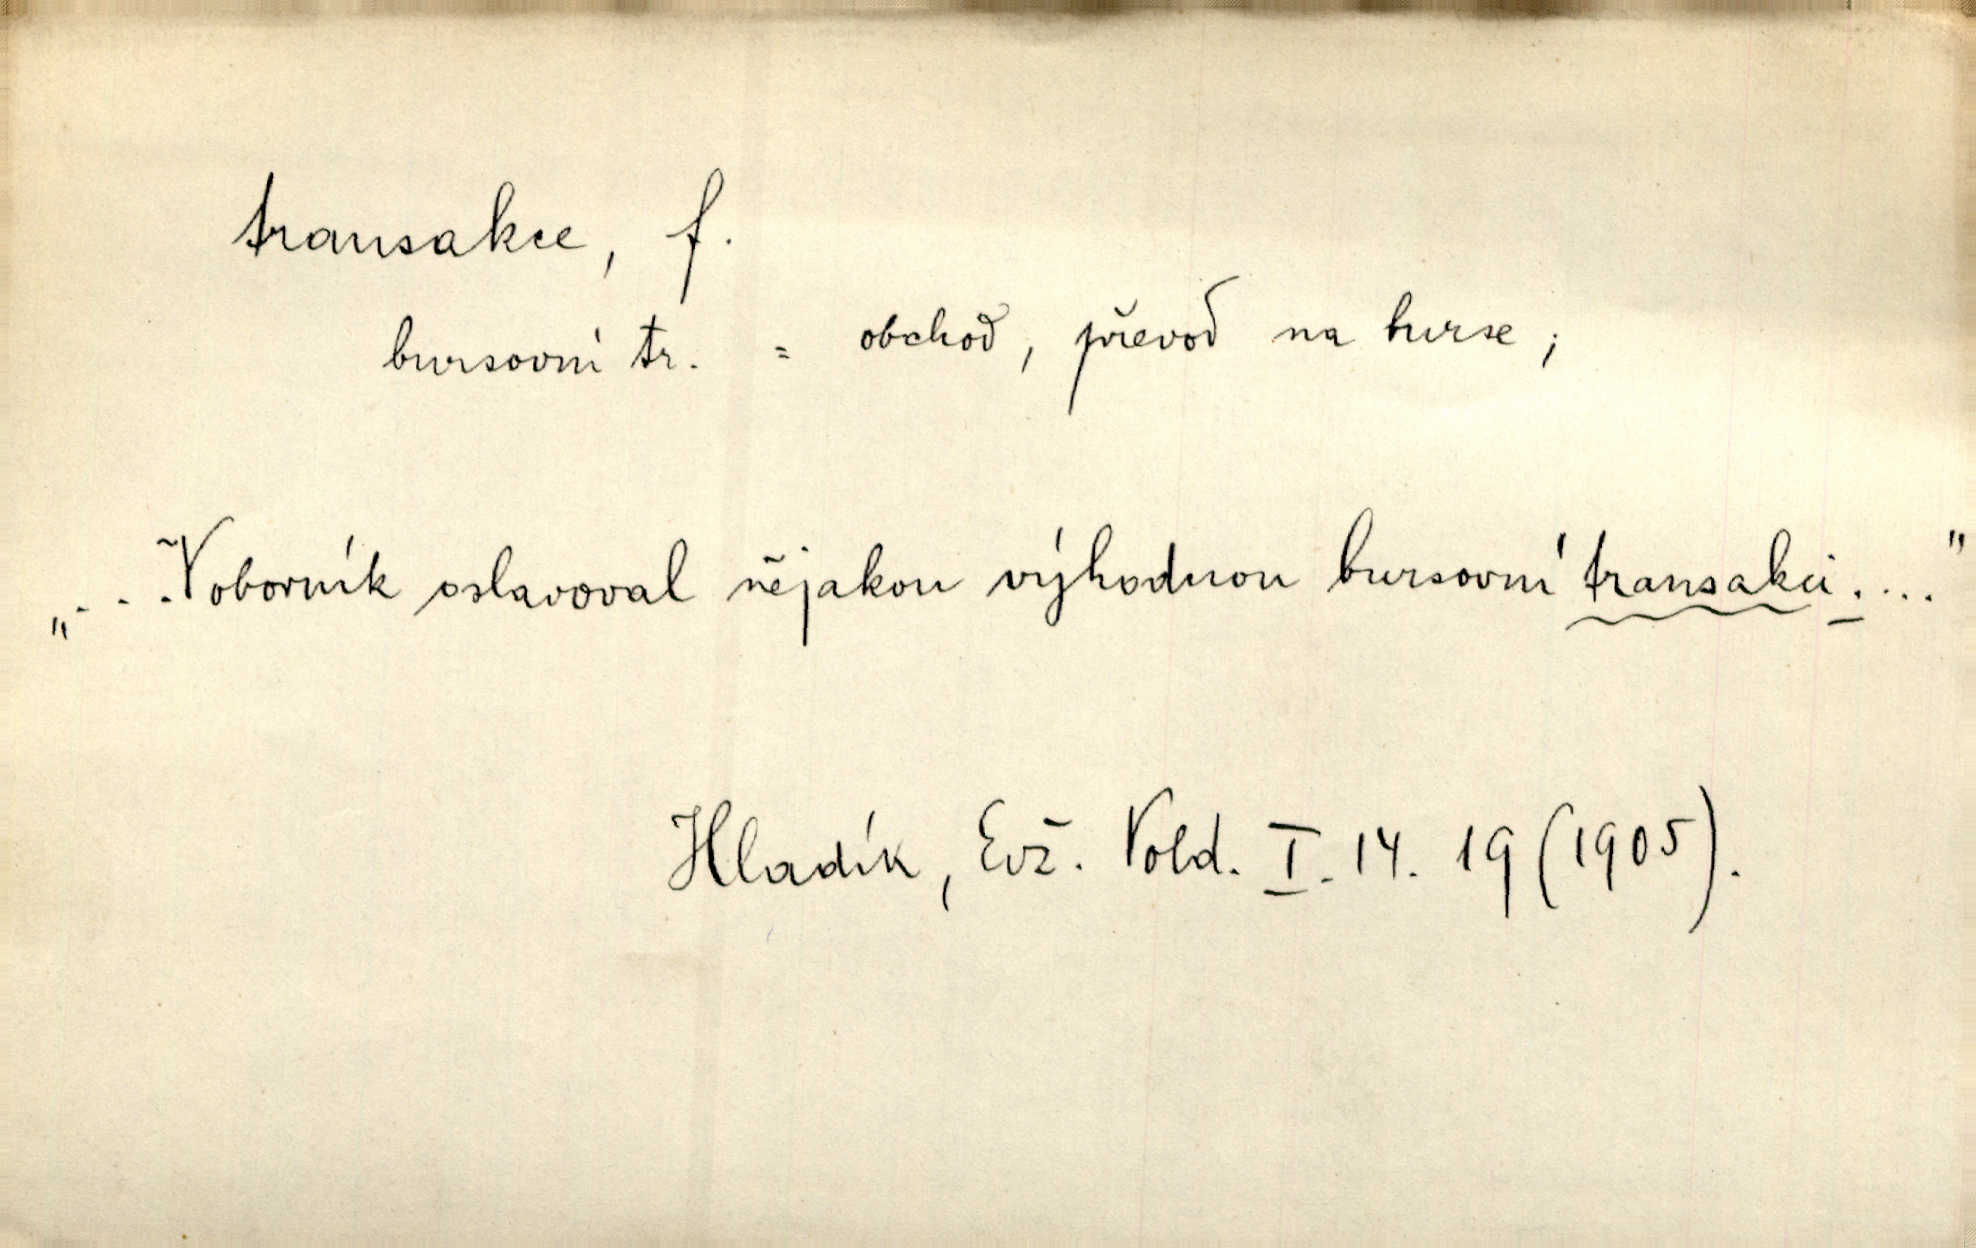 transakce, f.
bursovní tr. = obchod, převod na burse;
„...Voborník oslavoval nějakou výhodnou bursovní transakci...."
Hladík, Evž. Vold. I. 14. 19 (1905).